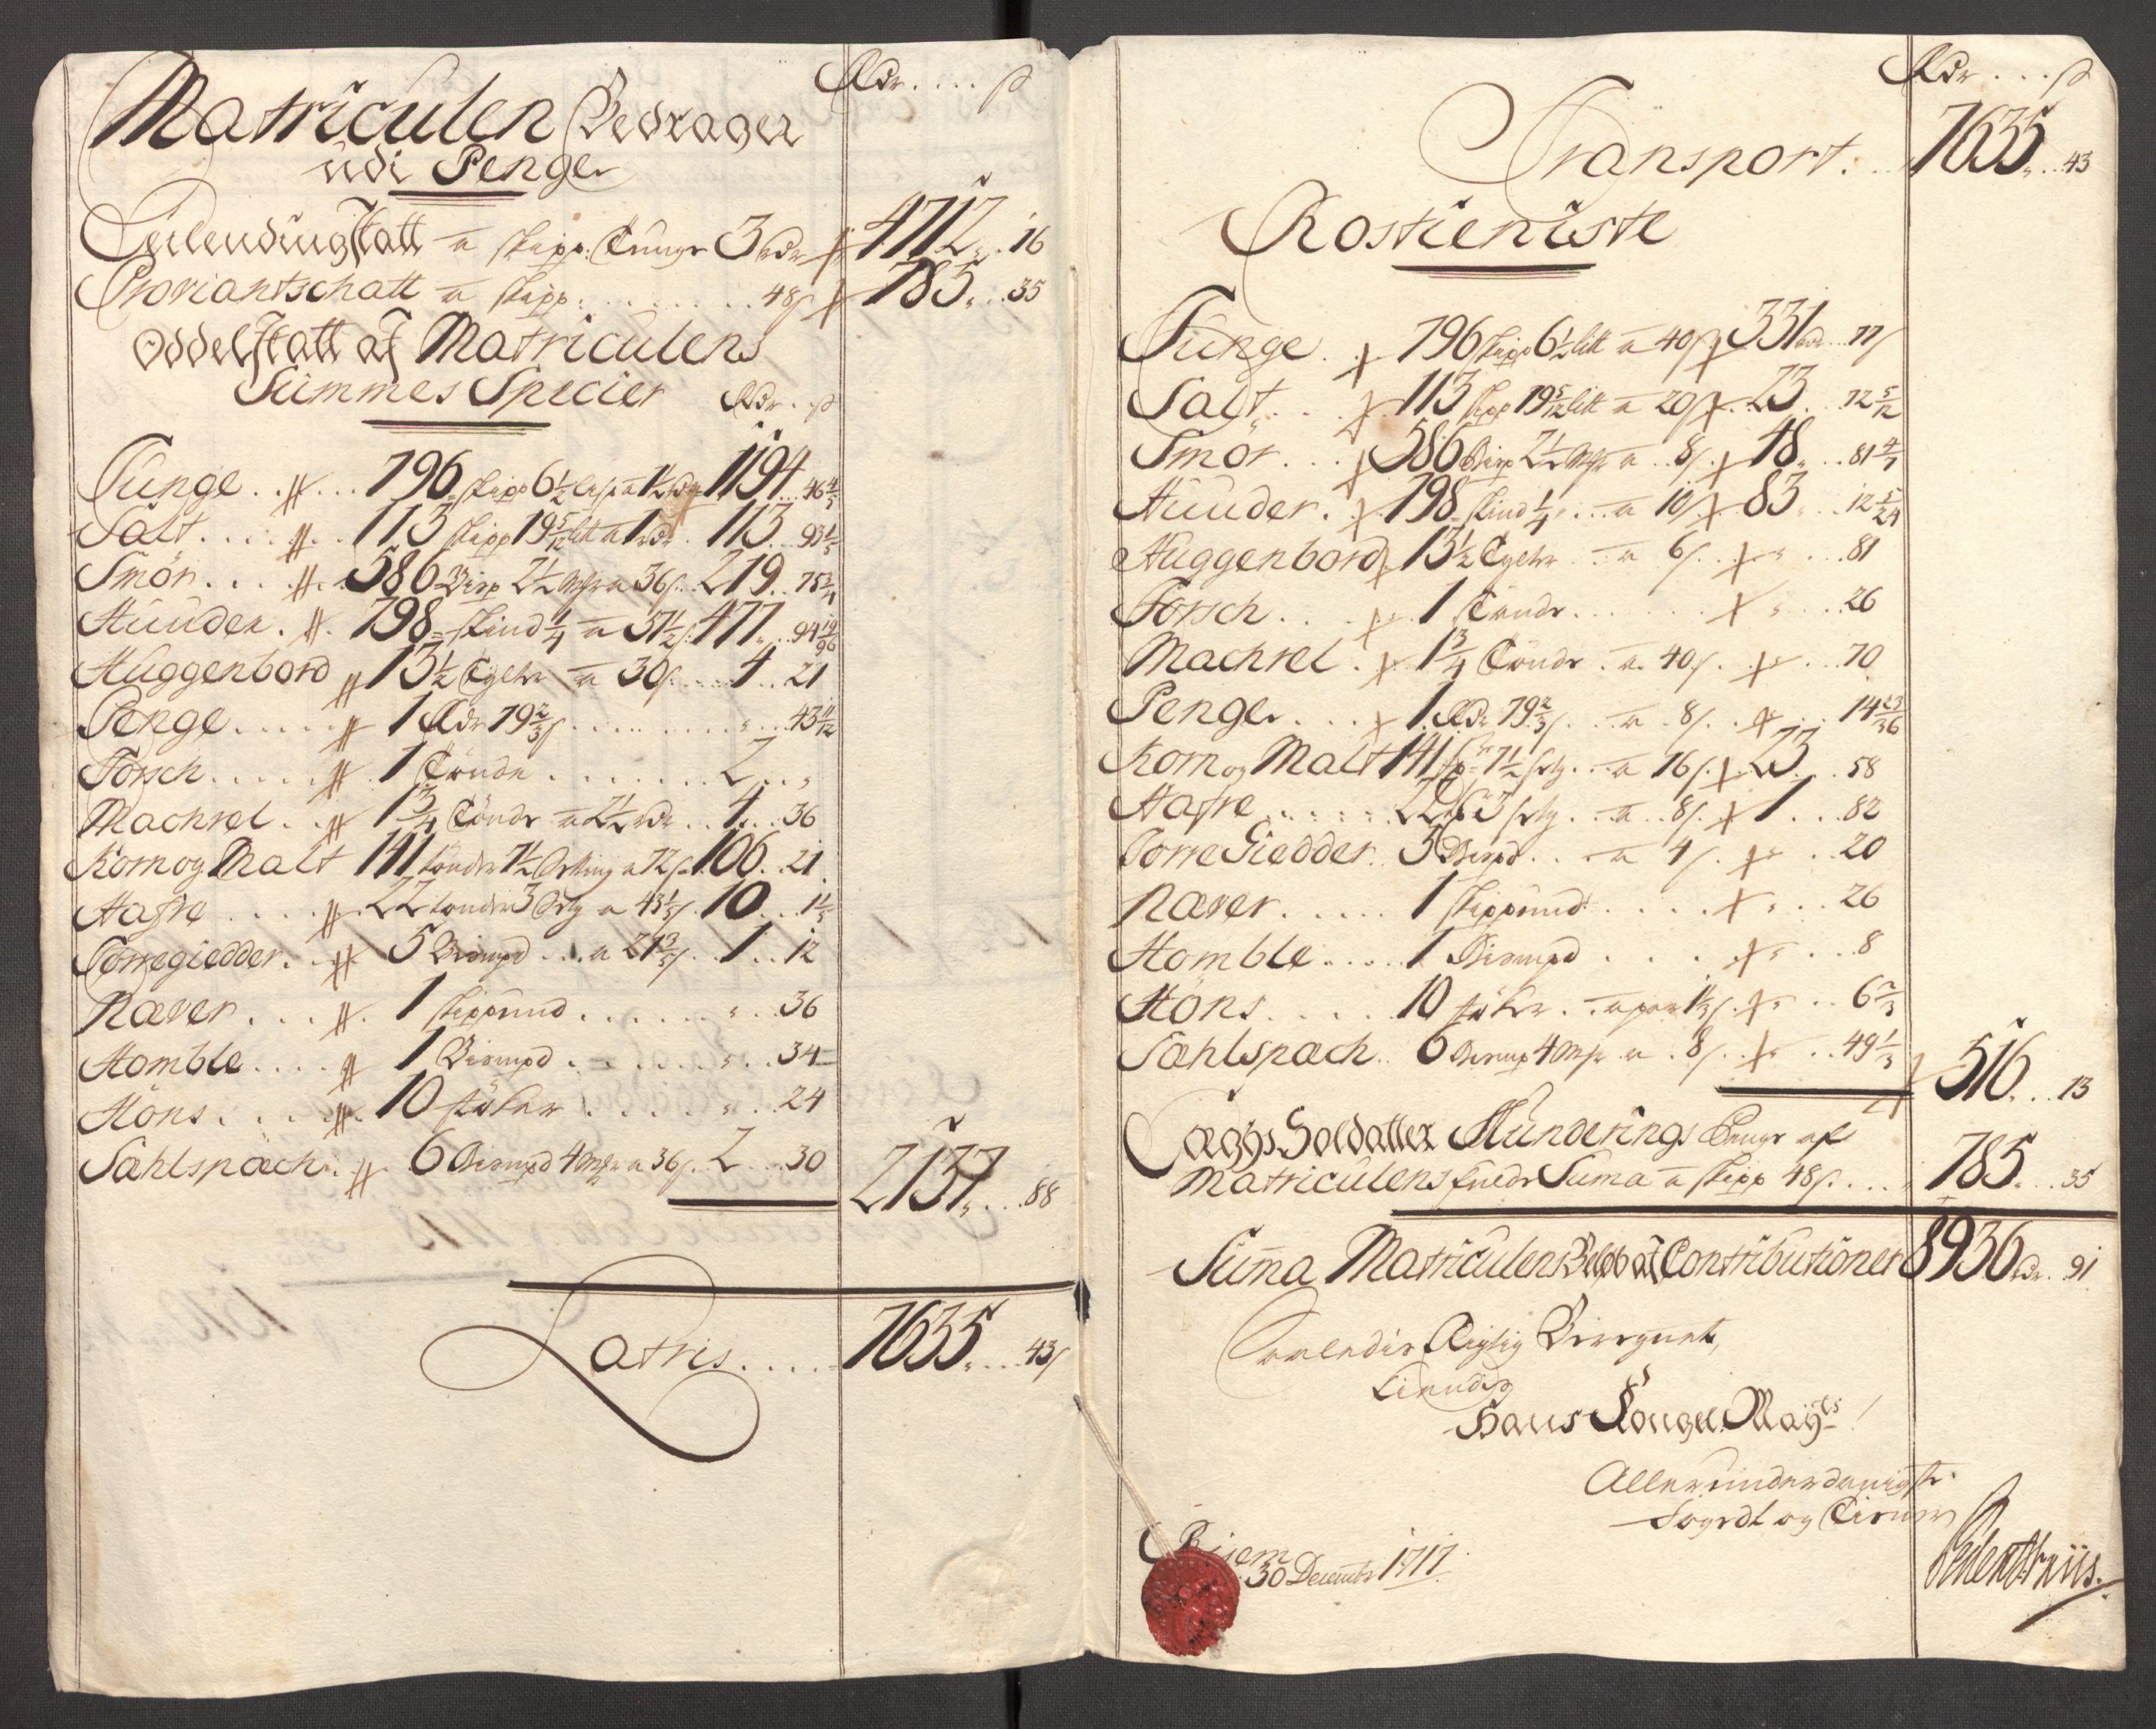 Rdr .... ß
Matriculen Bedrager
udi Penge
Leilendingskatt a skipp: Tunge 3 rdr 4712 .. 16
Proviantschatt a skipp: ........ 48 ß 785 .. 35
Oddelskatt af Matriculens
Summes Specier Rdr .. ß
Tunge .. 796 skipp 6 1/2 lisp a 1 1/2 rdr 1194 .. 46 4/5
Salt .... 113 skipp 19 5/12 litt a 1 rdr . 113 .. 93 1/5
Smör ... 586 Bisp 2 1/2 Mk a 36 ß .. 219 .. 75 3/4
Huuder .. 798 skind 1/4 a 57 1/2 ß 477 .. 94 19/96
Huggenbord 13 1/2 Tylter a 30 ß .... 4 .. 21
Penge ..... 1 Rdr 19 2/3 ß ........ " .. 43 11/12
Torsch ..... 1 Tönde ....... 2 .. "
Machrel .. 1 3/4 Tönde a 2 1/2 rdr .. 4 .. 36
Korn og Malt 141 tönder 7 1/2 Setting a 72 ß 106 .. 21
Hafre .... 22 tönder 3 Setg a 43 1/5 ß . 10 .. 1 1/5
Törregiedder .. 5 Bismpd .. a 21 3/5 ß . 1 .. 12
Næver .... 1 skippund ...... " .. 36
Homble .... 1 Bismpd ...... " .. 34
Höns ..... 10 stöker ..... " .. 24
Sahlspæch .. 6 Bismpd 4 Mk a 36 ß . 2 .. 30 2137 .. 88
Latris .... 7635 .. 43 ß
Rdr ... ß
Transport .. 7635 .. 43
Rostieniste
Tunge . 796 skipp 6 1/2 litt a 40 ß 331 rdr .. 77 ß
Salt ... 113 skipp 19 5/12 litt a 20 ß . 23 .. 72 5/12
Smör ... 586 Bisp 2 1/2 Mk a .. 8 ß . 48 .. 81 4/7
Huuder . 798 skind 1/4 ... a 10 ß 83 .. 12 5/24
Huggenbord 13 1/2 Tylter .. a 6 ß .. " .. 81
Torsch .... 1 Tönde ...... " ... 26
Machrel . 1 3/4 Tönde . a 40 ß . " .. 70
Penge ... 1 Rdr 19 2/3 ß .. a . 8 ß .. " .. 14 23/36
Korn og Malt 141 tr 7 1/2 setg .. a 16 ß . 23 .. 58
Hafre ...... 22 tr 3 setg .. a . 8 ß . 1 .. 82
Törre Giedder . 5 Bismpd .. a 4 ß . " . 20
Næver ..... 1 skippund ..... " .. 26
Homble .... 1 Bismpd .... " .. 8
Höns ..... 10 stöker .. a par 1 1/3 ß . " .. 6 2/3
Sahlspæch .. 6 Bismp 4 Mk a . 8 ß .. " .. 49 1/3 516 .. 13
Lægs Soldatter Munderings Penge af
Matriculens fulde Suma a skipp 48 ß .... 785 .. 35
Suma Matriculens Beløb af Contributioner 8936 rdr . 91
Saaledis Rigtig Beregnet,
Hans Kongel. Mayts
Allerunderdanigste
Fogedt og Tiener
30 Decembr 1717